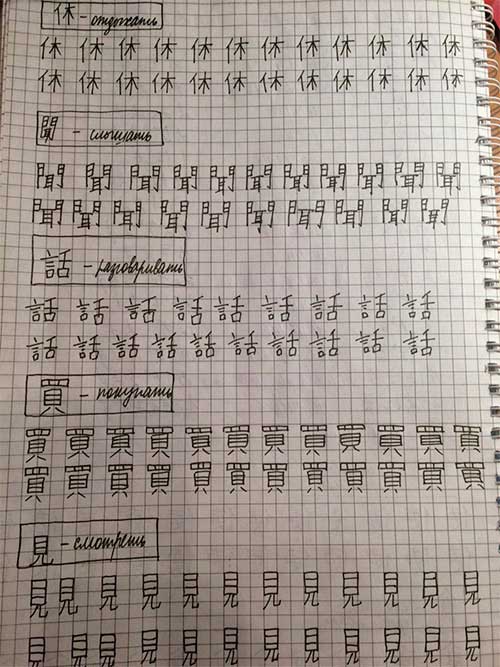 休 - отдыхать
休 休 休 休 休 休 休 休 休 休 休 休
休 休 休 休 休 休 休 休 休 休 休 休
聞 - слышать
聞 聞 聞 聞 聞 聞 聞 聞 聞 聞 聞
聞 聞 聞 聞 聞 聞 聞 聞 聞 聞
話 - разговаривать
話 話 話 話 話 話 話 話 話
話 話 話 話 話 話 話 話 話 話
買 - покупать
買 買 買 買 買 買 買 買 買 買 買 買
買 買 買 買 買 買 買 買 買 買 買 買
見 - смотреть
見 見 見 見 見 見 見 見 見 見 見 見
見 見 見 見 見 見 見 見 見 見 見 見